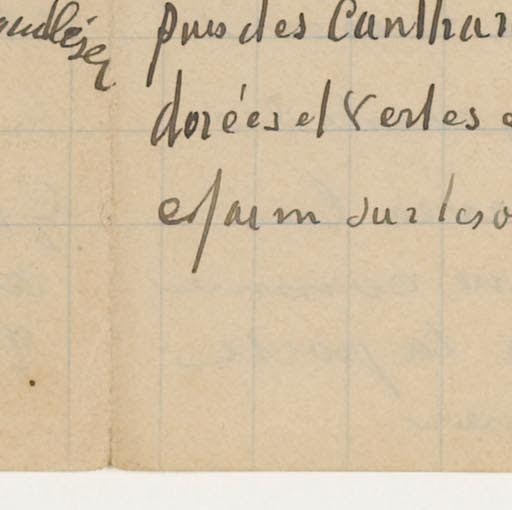 puis des Canthar
dorées et vertes
essaim sur les o